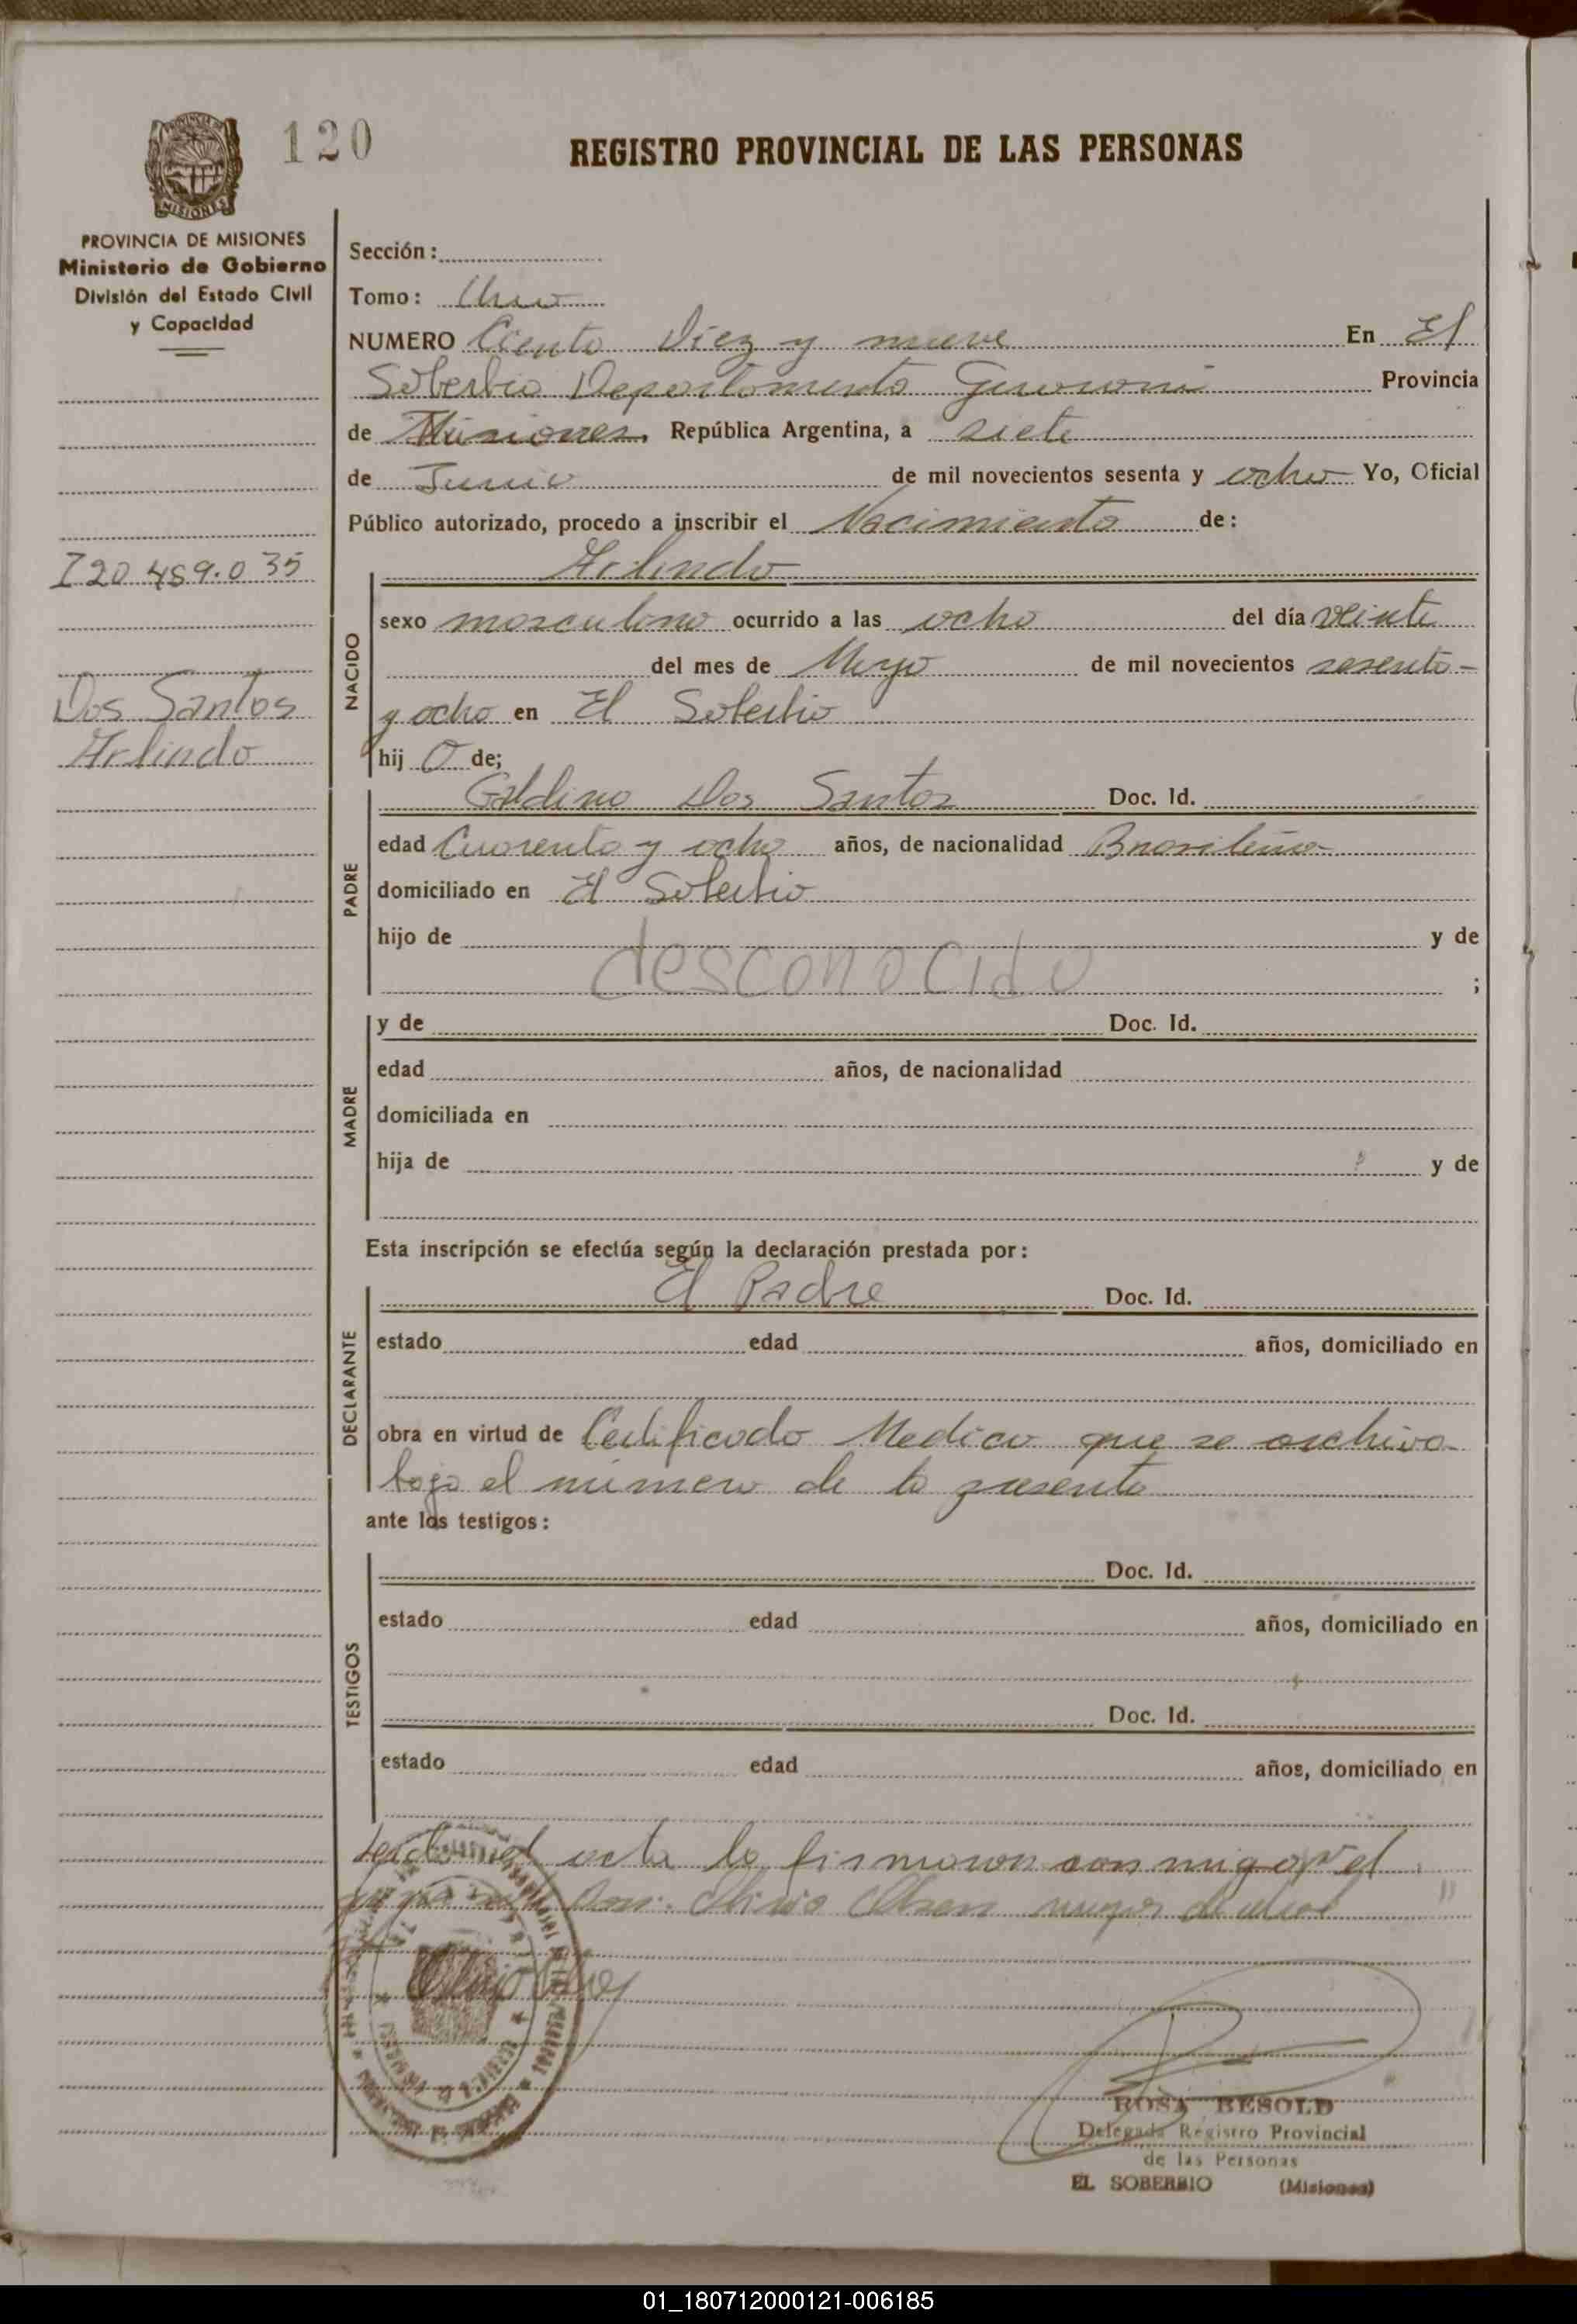 120
REGISTRO PROVINCIAL DE LAS PERSONAS
MISIONES
PROVINCIA DE MISIONES
Ministerio de Gobierno
División del Estado Civil
y Capacidad
I 20.459.035
Dos Santos
Arlindo
Sección:
Tomo: Uno
NUMERO Ciento Diez y nueve En El
Soberbio Departamento Guarani Provincia
de Misiones, República Argentina, a siete
de Junio de mil novecientos sesenta y ocho Yo, Oficial
Público autorizado, procedo a inscribir el Nacimiento de:
NACIDO
Arlindo
sexo masculino ocurrido a las ocho del día veinte
del mes de Mayo de mil novecientos sesenta
y ocho en El Soberbio
hij o de;
PADRE
Galdino Dos Santos Doc. Id.
edad Cuarenta y ocho años, de nacionalidad Brasileño
domiciliado en El Soberbio
hijo de y de
desconocido
;
MADRE
y de Doc. Id.
edad años, de nacionalidad
domiciliada en
hija de y de
Esta inscripción se efectúa según la declaración prestada por:
DECLARANTE
El Padre Doc. Id.
estado edad años, domiciliado en
obra en virtud de Certificado Medico que se archiva
bajo el número de la presente
ante los testigos:
TESTIGOS
Doc. Id.
estado edad años, domiciliado en
Doc. Id.
estado edad años, domiciliado en
acta la firmaron conmigo
mayor de edad
ROSA BESOLD
Delegada Registro Provincial
de las Personas
EL SOBERBIO (Misiones)
01_180712000121-006185